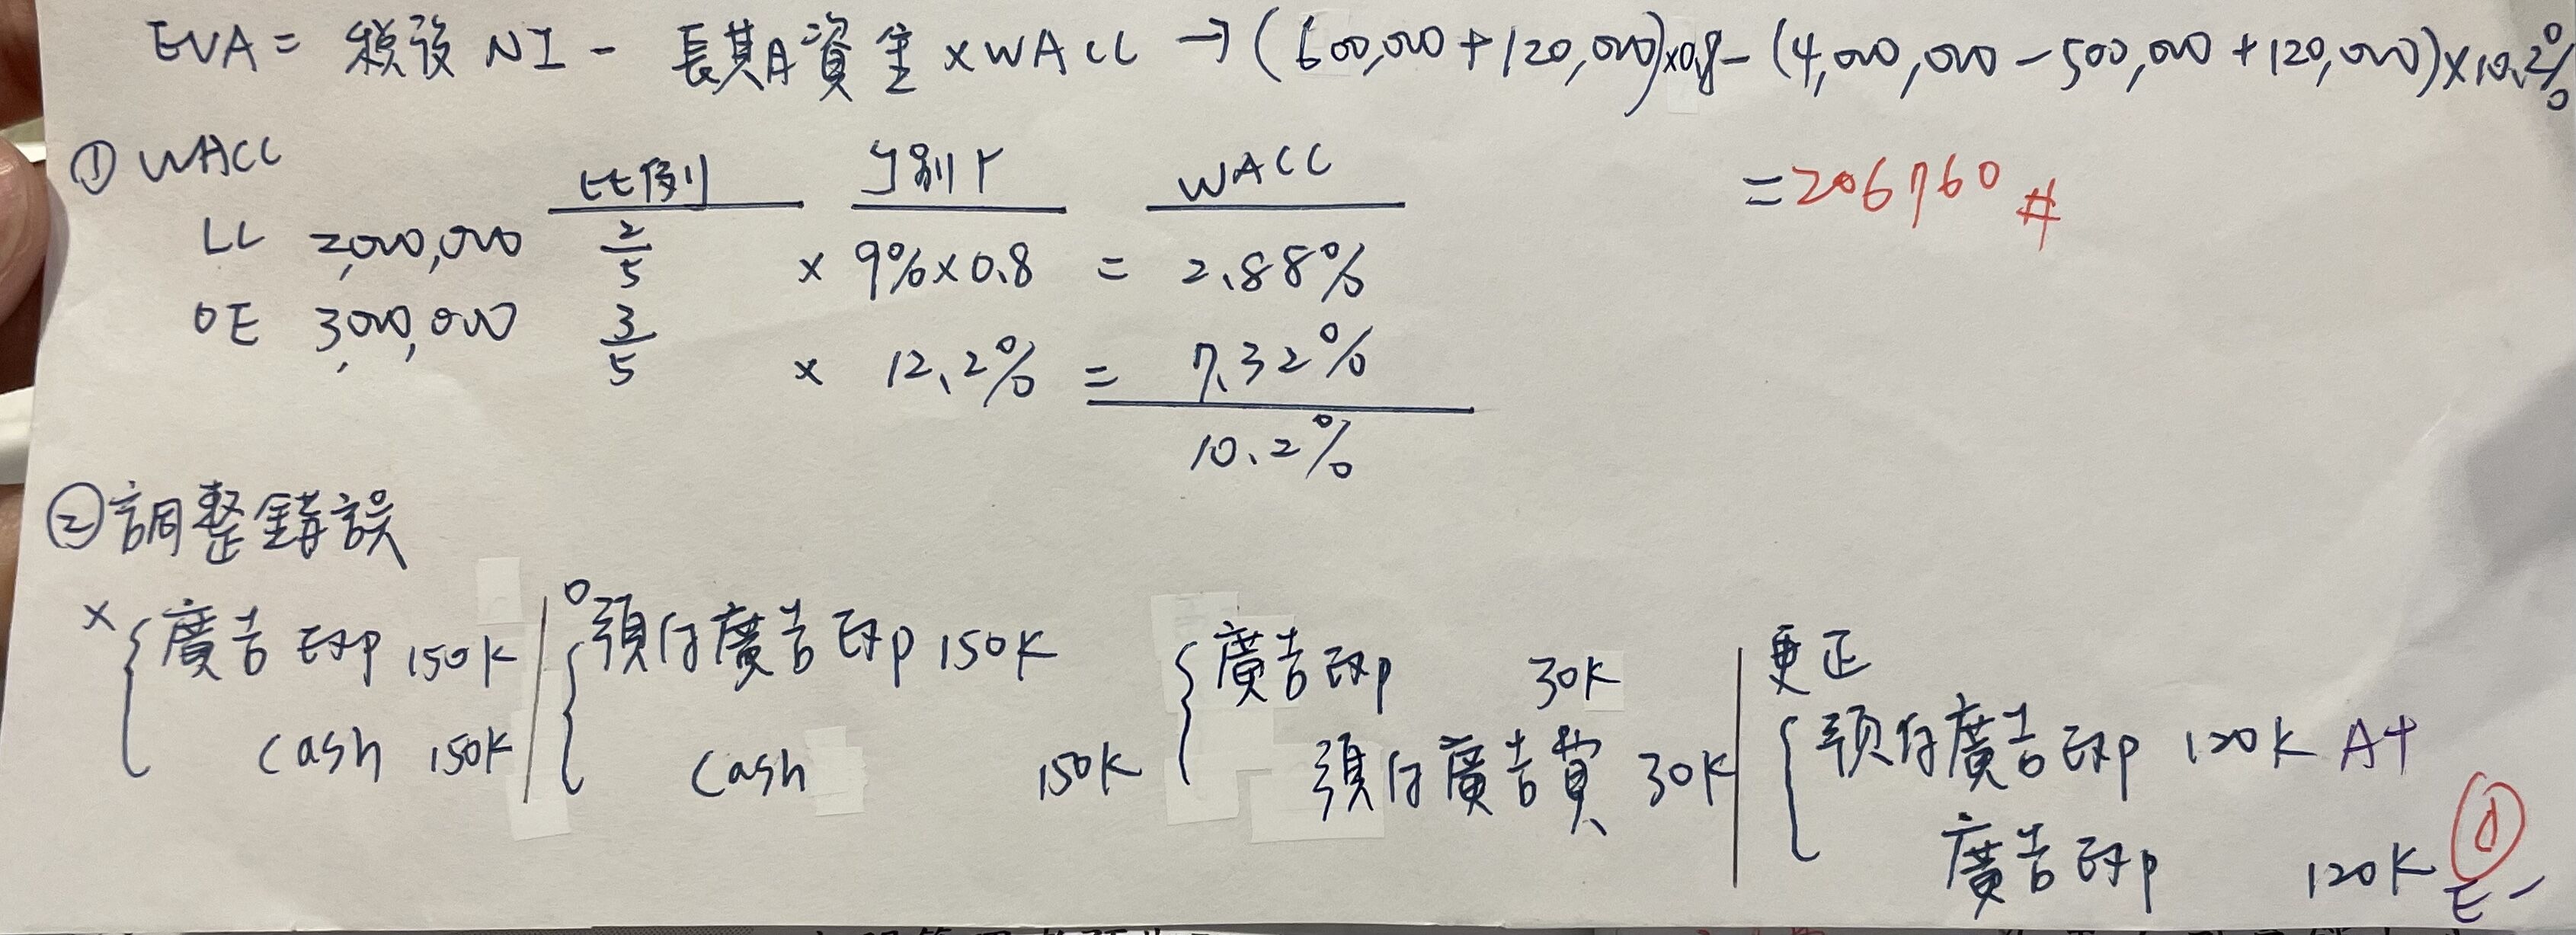 EVA = 稅後 NI - 長期資金 × WACC → (600,000 + 120,000)×0.8 - (4,000,000 - 500,000 + 120,000)×10.2%
= 206760 #
① WACC
比例 個別r WACC
LL 2,000,000 2/5 × 9%×0.8 = 2.88%
OE 3,000,000 3/5 × 12.2% = 7.32%
10.2%
② 調整錯誤
× { 廣告 Exp 150K
Cash 150K
○ { 預付廣告 Exp 150K
Cash 150K
{ 廣告 Exp 30K
預付廣告費 30K
更正
{ 預付廣告 Exp 120K A+
廣告 Exp 120K E-